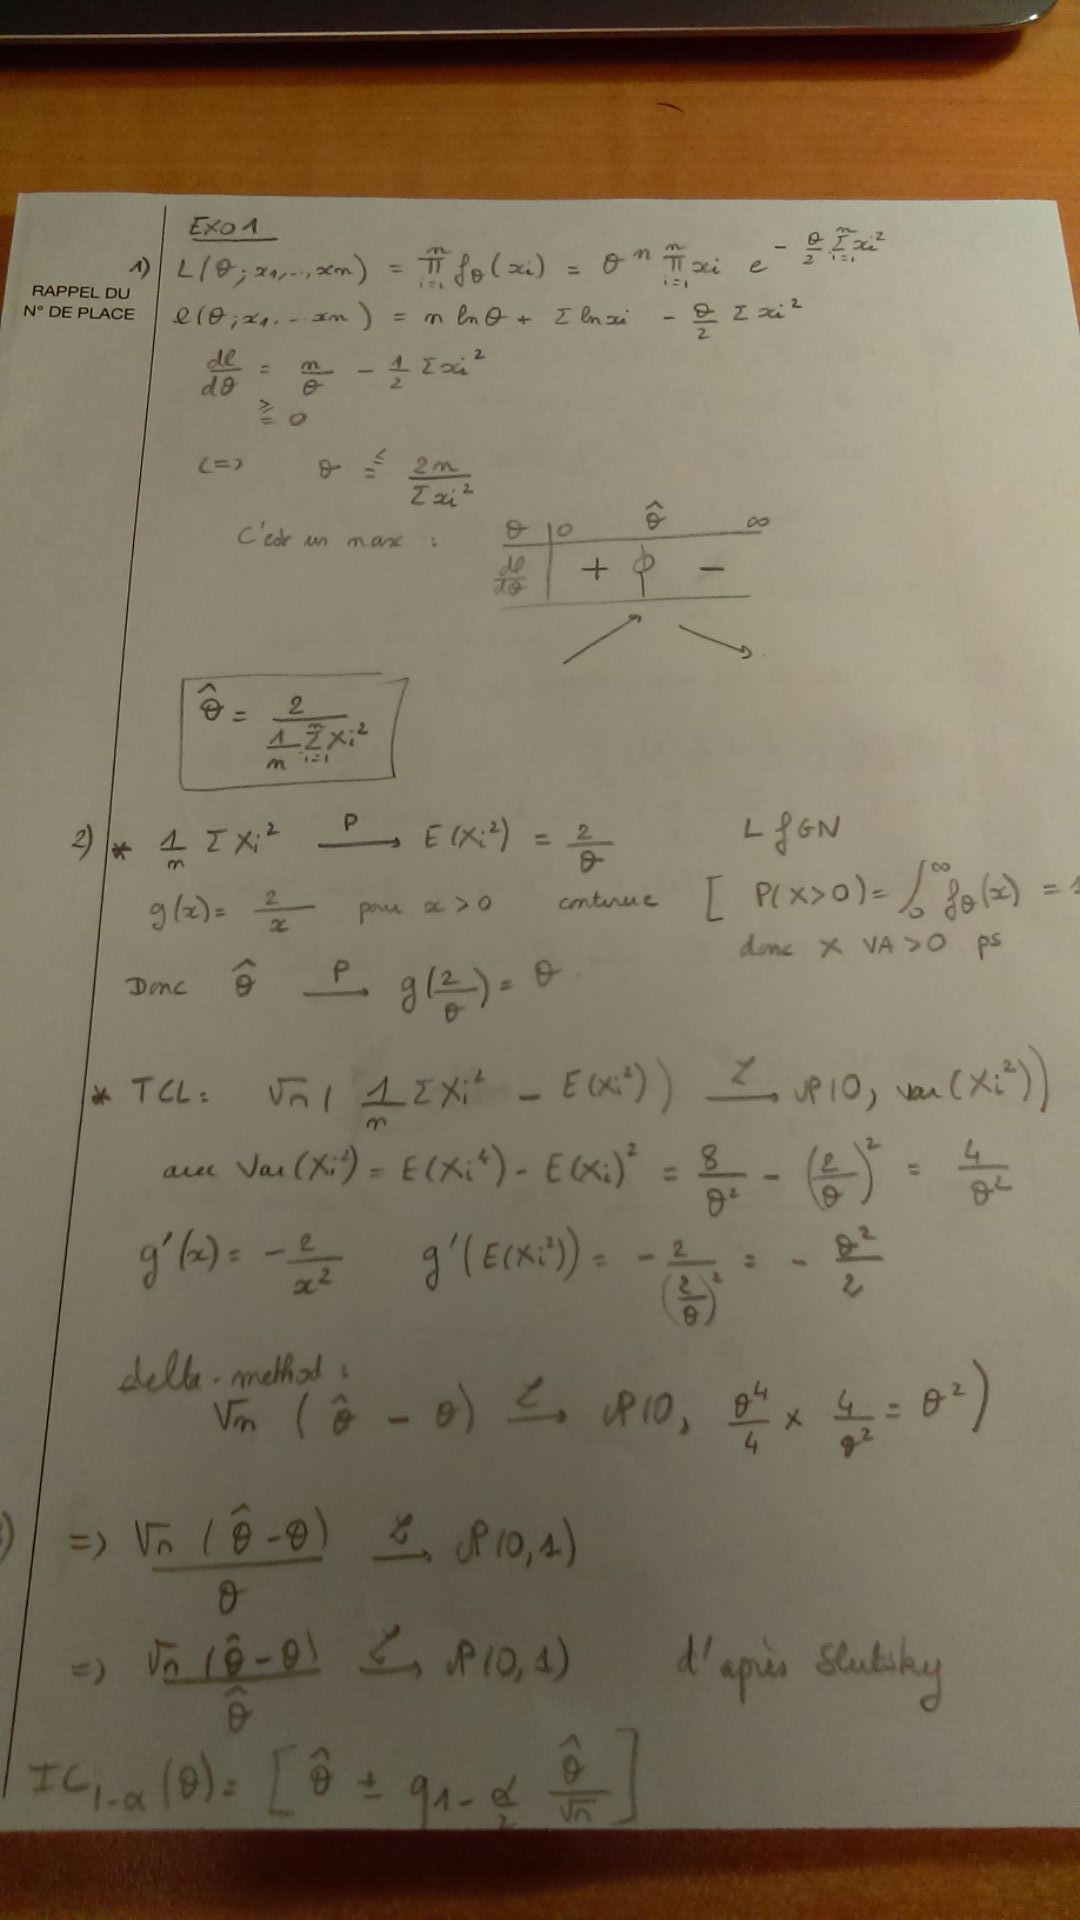 EXO 1
RAPPEL DU
N° DE PLACE
1) L(θ; x1,..., xn) = ∏_{i=1}^{n} fθ(xi) = θ^n ∏_{i=1}^{n} xi e^{- θ/2 Σ_{i=1}^{n} xi²}
l(θ; x1....xn) = n ln θ + Σ ln xi - θ/2 Σ xi²
dl/dθ = n/θ - 1/2 Σ xi²
≥= 0
(=) θ ≤= 2n/Σ xi²
C'est un max :
θ | 0 θ̂ ∞
dl/dθ | + φ -
↗ ↘
θ̂ = 2 / (1/n Σ_{i=1}^{n} Xi²)
2) * 1/n Σ Xi² —P→ E(Xi²) = 2/θ LfGN
g(x) = 2/x pour x > 0 continue [ P(X>0) = ∫_0^∞ fθ(x) = 1
donc X VA > 0 ps
Donc θ̂ —P→ g(2/θ) = θ
* TCL : √n ( 1/n Σ Xi² - E(Xi²) ) —L→ N(0, var(Xi²))
avec Var(Xi²) = E(Xi⁴) - E(Xi)² = 8/θ² - (2/θ)² = 4/θ²
g'(x) = - 2/x² g'(E(Xi²)) = - 2/(2/θ)² = - θ²/2
delta-method :
√n ( θ̂ - θ) —L→ N(0, θ⁴/4 × 4/θ² = θ²)
=) √n (θ̂ - θ)/θ —L→ N(0,1)
=) √n (θ̂ - θ)/θ̂ —L→ N(0,1) d'après Slutsky
IC_{1-α}(θ) = [ θ̂ ± q_{1-α/2} θ̂/√n ]